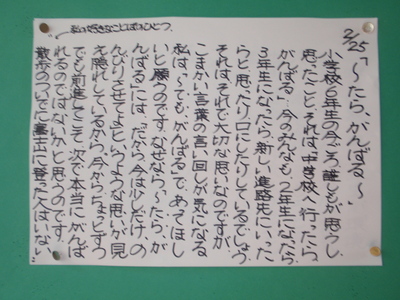 2/25「〜たら、がんばる〜
小学校6年生の今ごろ、誰しもが思うし、
思ったこと、それは、中学校へ行ったら
がんばる…今のみんなも、2年生になったら、
3年生になったら、新しい進路先にいった
らと思ったり口にしたりしているでしょう。
それはそれで大切な思いなのですが、
こまかい言葉の言い回しが気になる
私は、〜ても、がんばるで、あってほし
いと願うのです。なぜなら、〜たら、が
んばる」には、「だから、今は少しだけ、の
んびりさせてよ」というような思いが、見
え隠れしているから。今からちょっとずつ
でも前進してこそ、次で本当にがんば
れるのではないかと思うのです。
散歩のついでに富士山に登った人はいない。
私の好きなことばのひとつ。